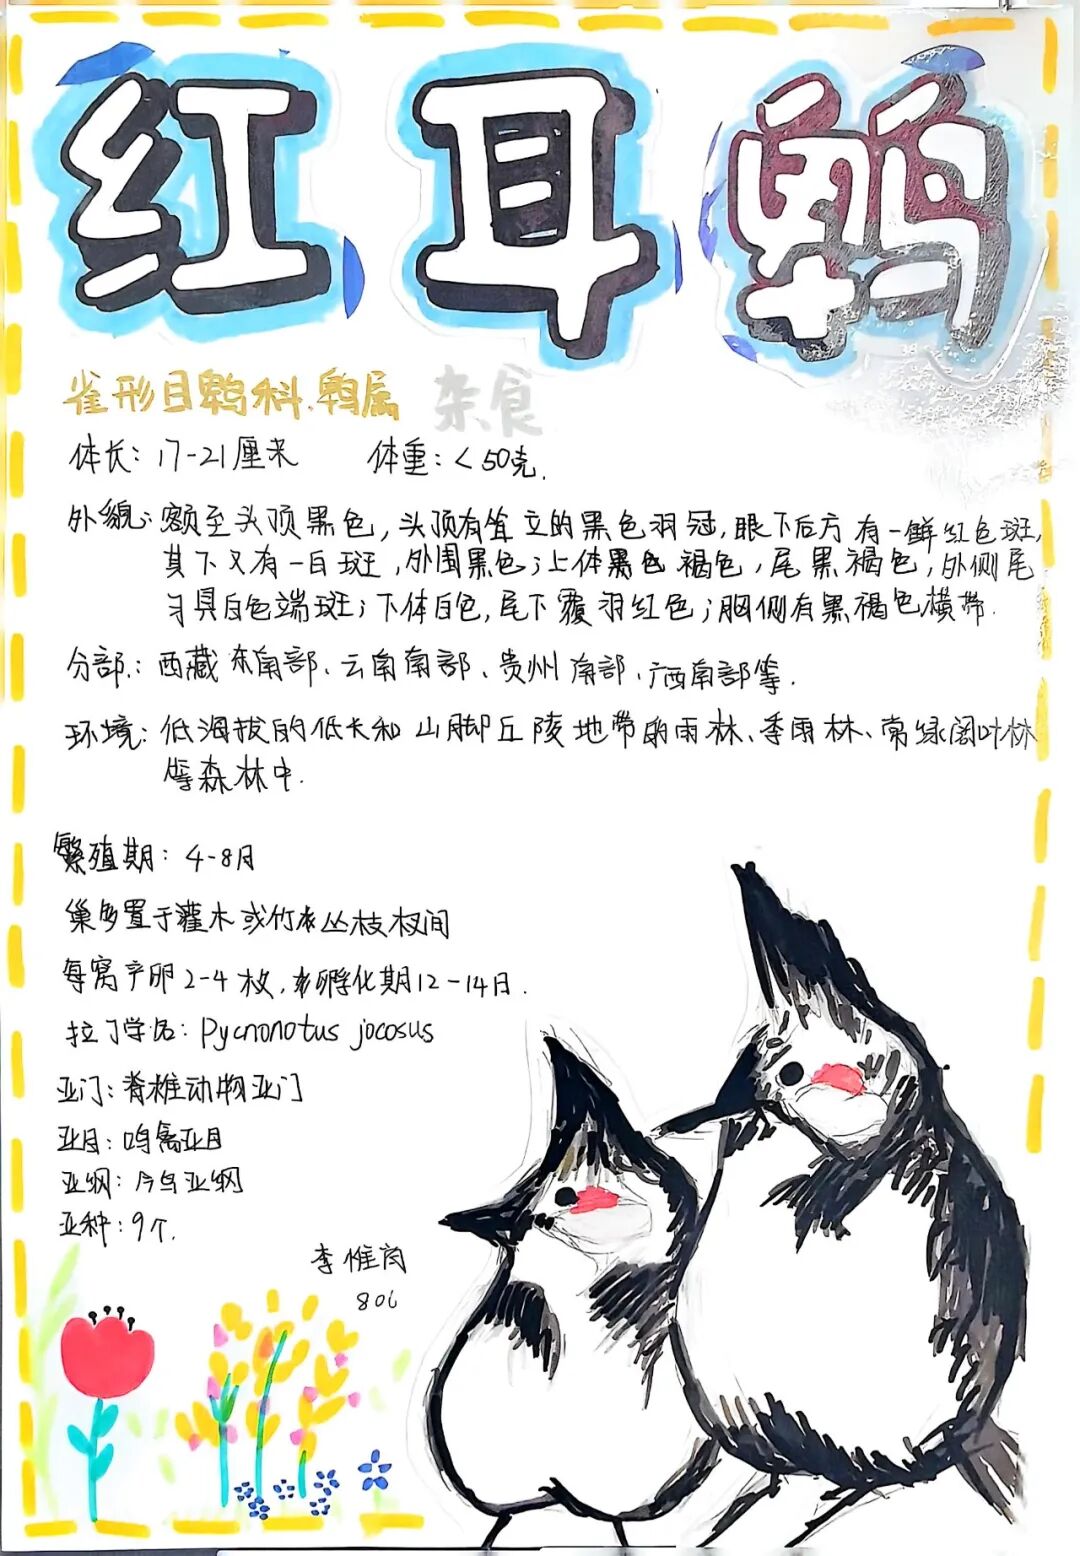 红耳鹎
雀形目鹎科.鹎属 杂食
体长：17-21厘米 体重：<50克.
外貌：额至头顶黑色，头顶有耸立的黑色羽冠，眼下后方有一鲜红色斑，
其下又有一白斑，外围黑色；上体黑色褐色，尾黑褐色，外侧尾
羽具白色端斑；下体白色，尾下覆羽红色；胸侧有黑褐色横带.
分部：西藏东南部、云南南部、贵州南部、广西南部等.
环境：低海拔的低长和山脚丘陵地带的雨林、季雨林、常绿阔叶林
等森林中.
繁殖期：4-8月
巢多置于灌木或竹丛枝杈间
每窝产卵2-4枚，孵化期12-14日.
拉丁学名：Pycnonotus jocosus
亚门：脊椎动物亚门
亚目：鸣禽亚目
亚纲：今鸟亚纲
亚种：9个.
李惟